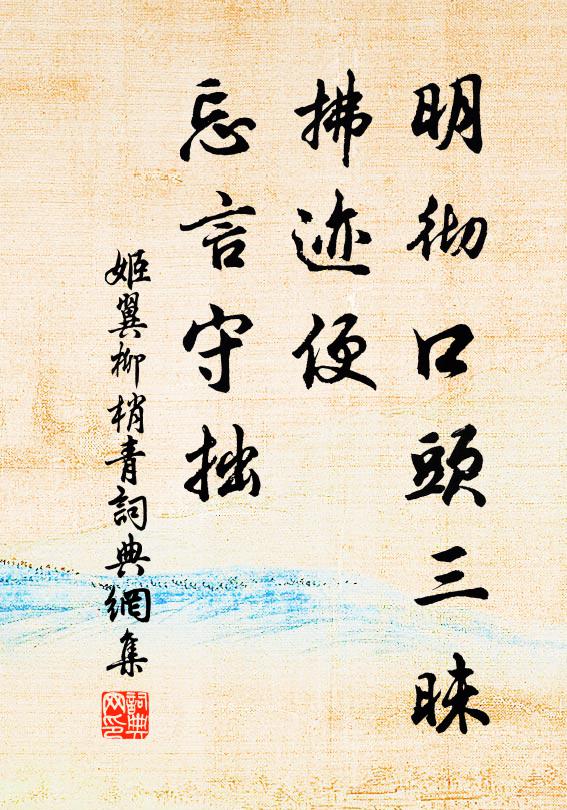 明彻口頭三昧
拂迹便
忘言守拙
姬翼柳梢青詞典網集
詞典网印